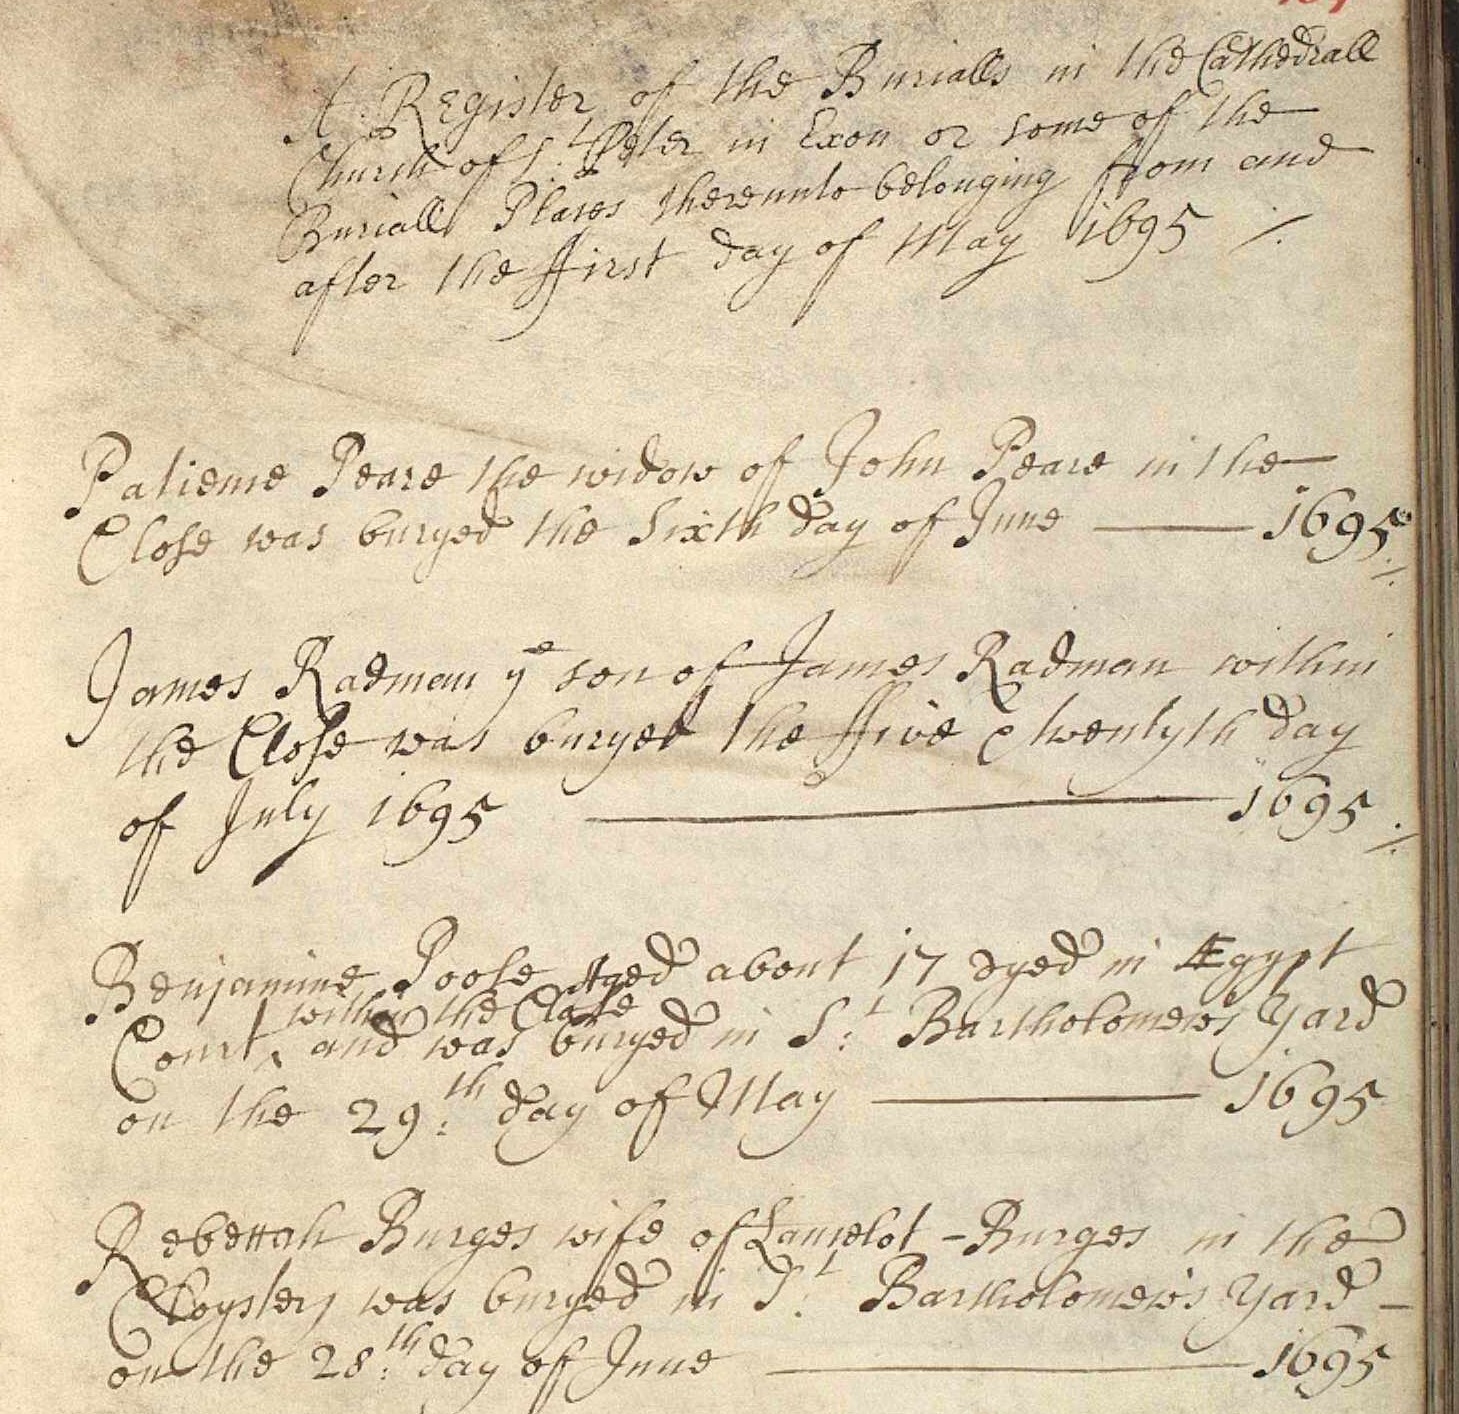 A Register of the Burialls in the Cathedrall
Church of St. Peter in Exon or some of the
Buriall Places thereunto belonging from and
after the ffirst day of May 1695
Patience Peare the widow of John Peare in the
Close was buryed the Sixth day of June 1695
James Radman ye son of James Radman within
the Close was buryed the ffive & twentyth day
of July 1695 1695
Benjamine Poole Aged about 17 dyed in Ægypt
within the Close
Court, and was buryed in St. Bartholomews Yard
on the 29th. day of May 1695
Rebeccah Burges wife of Lancelot - Burges in the
Cloysters was buryed in St. Bartholomew's Yard -
on the 28th. day of June 1695